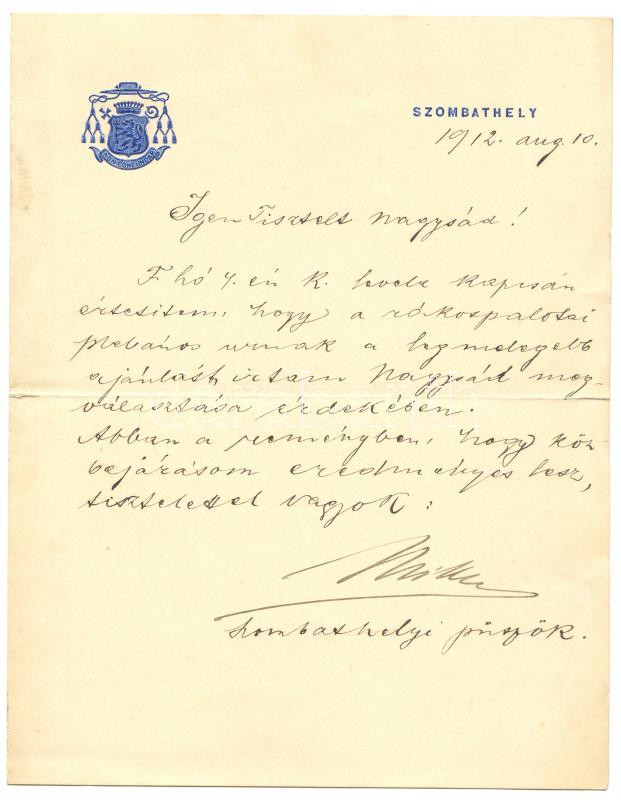 SZOMBATHELY
1912. aug. 10.
Igen Tisztelt Nagysád!
F. hó 4.én k. levele kapcsán
értesitem, hogy a rákospalotai
plebános urnak a legmelegebb
ajánlást irtam Nagysád meg-
választása érdekében.
Abban a reményben, hogy köz-
bejárásom eredményes lesz,
tisztelettel vagyok:
szombathelyi püspök.